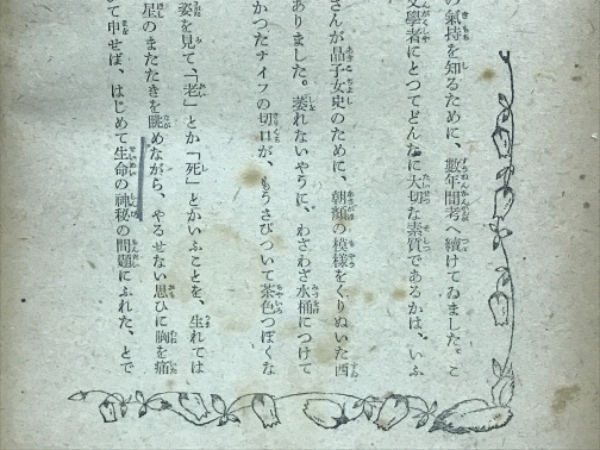 の氣持を知るために、數年間考へ續けてゐました。こ
文學者にとつてどんなに大切な素質であるかは、いふ
さんが晶子女史のために、朝顏の模樣をくりぬいた西
ありました。萎れないやうに、わざわざ水桶につけて
かつたナイフの切口が、もうさびついて茶色つぽくな
姿を見て、「老」とか「死」とかいふことを、生れては
星のまたたきを眺めながら、やるせない思ひに胸を痛
て申せば、はじめて生命の神秘の問題にふれた、とで